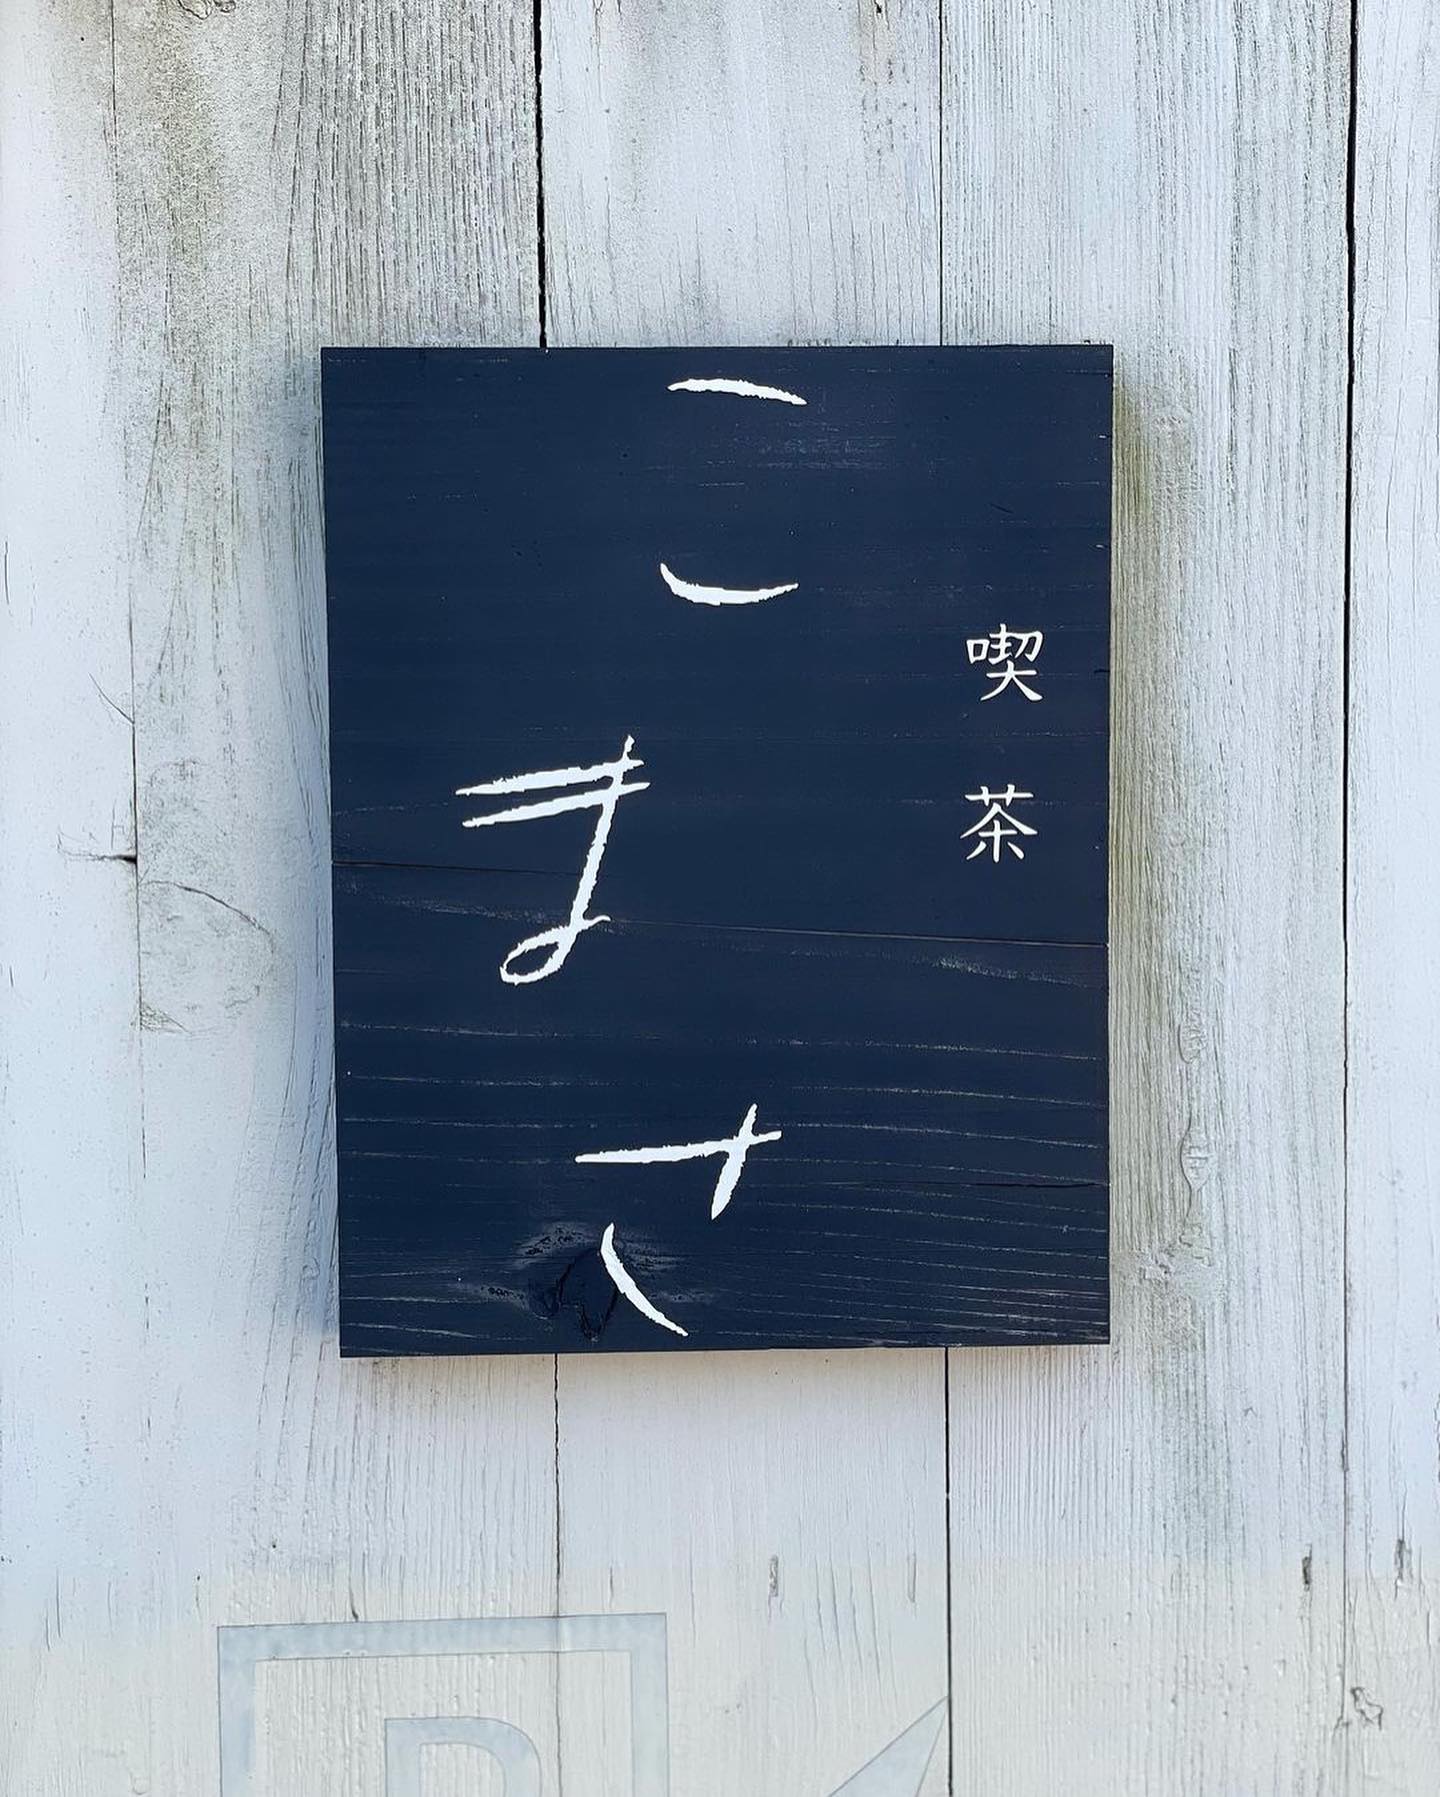 喫茶
こまさ
P